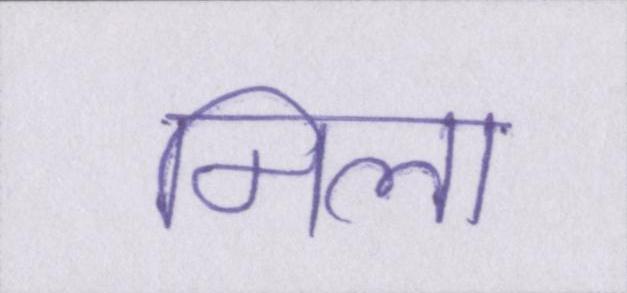 मिला